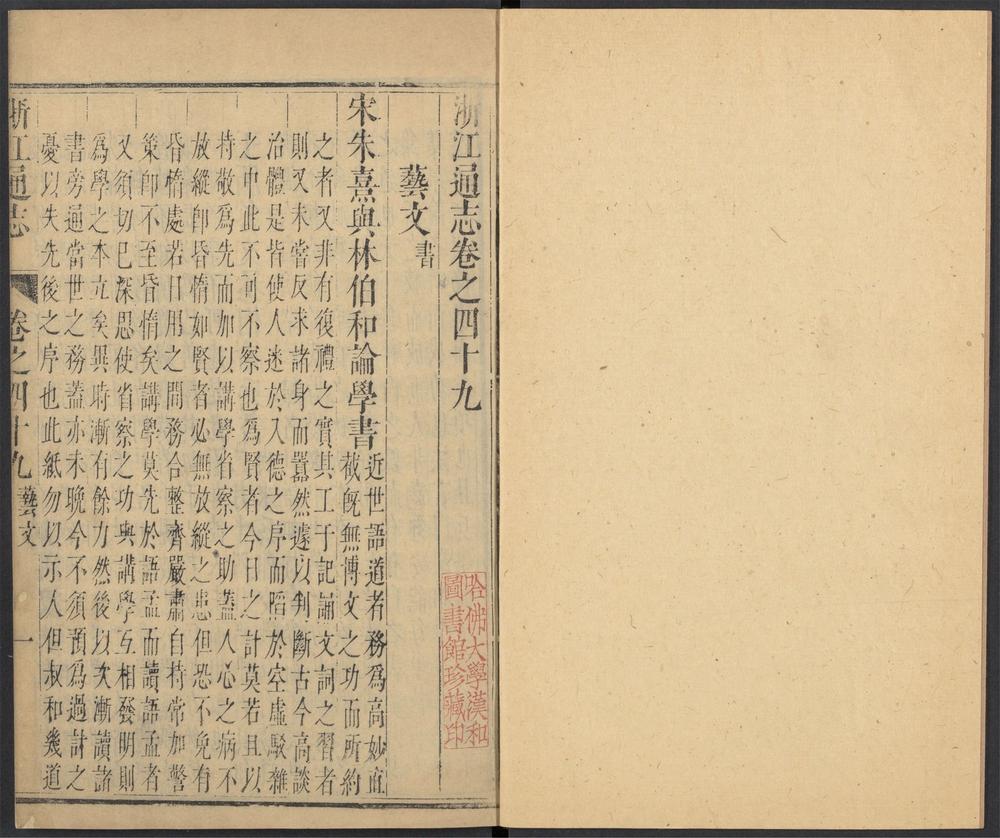 浙江通志卷之四十九
藝文書
宋朱熹與林伯和論學書近世語道者務為高妙直
截旣無博文之功而所約
之者又非有復禮之實其工于記誦文詞之習者
則又未嘗反求諸身而囂然遽以判斷古今高談
治體是皆使人迷於入德之序而陷於空虛駁雜
之中此不可不察也為賢者今日之計莫若且以
持敬為先而加以講學省察之助蓋人心之病不
放縱卽昏惰如賢者必無放縱之患但恐不免有
昏惰處若日用之間務合整齊嚴肅自持常加警
策卽不至昏惰矣講學莫先於語孟而讀語孟者
又須切己深思使省察之功與講學互相發明則
為學之本立矣異時漸有餘力然後以次漸讀諸
書旁通當世之務蓋亦未晚今不須預為過計之
憂以失先後之序也此紙勿以示人但叔和幾道
浙江通志
卷之四十九藝文
一
哈佛大學漢和
圖書館珍藏印